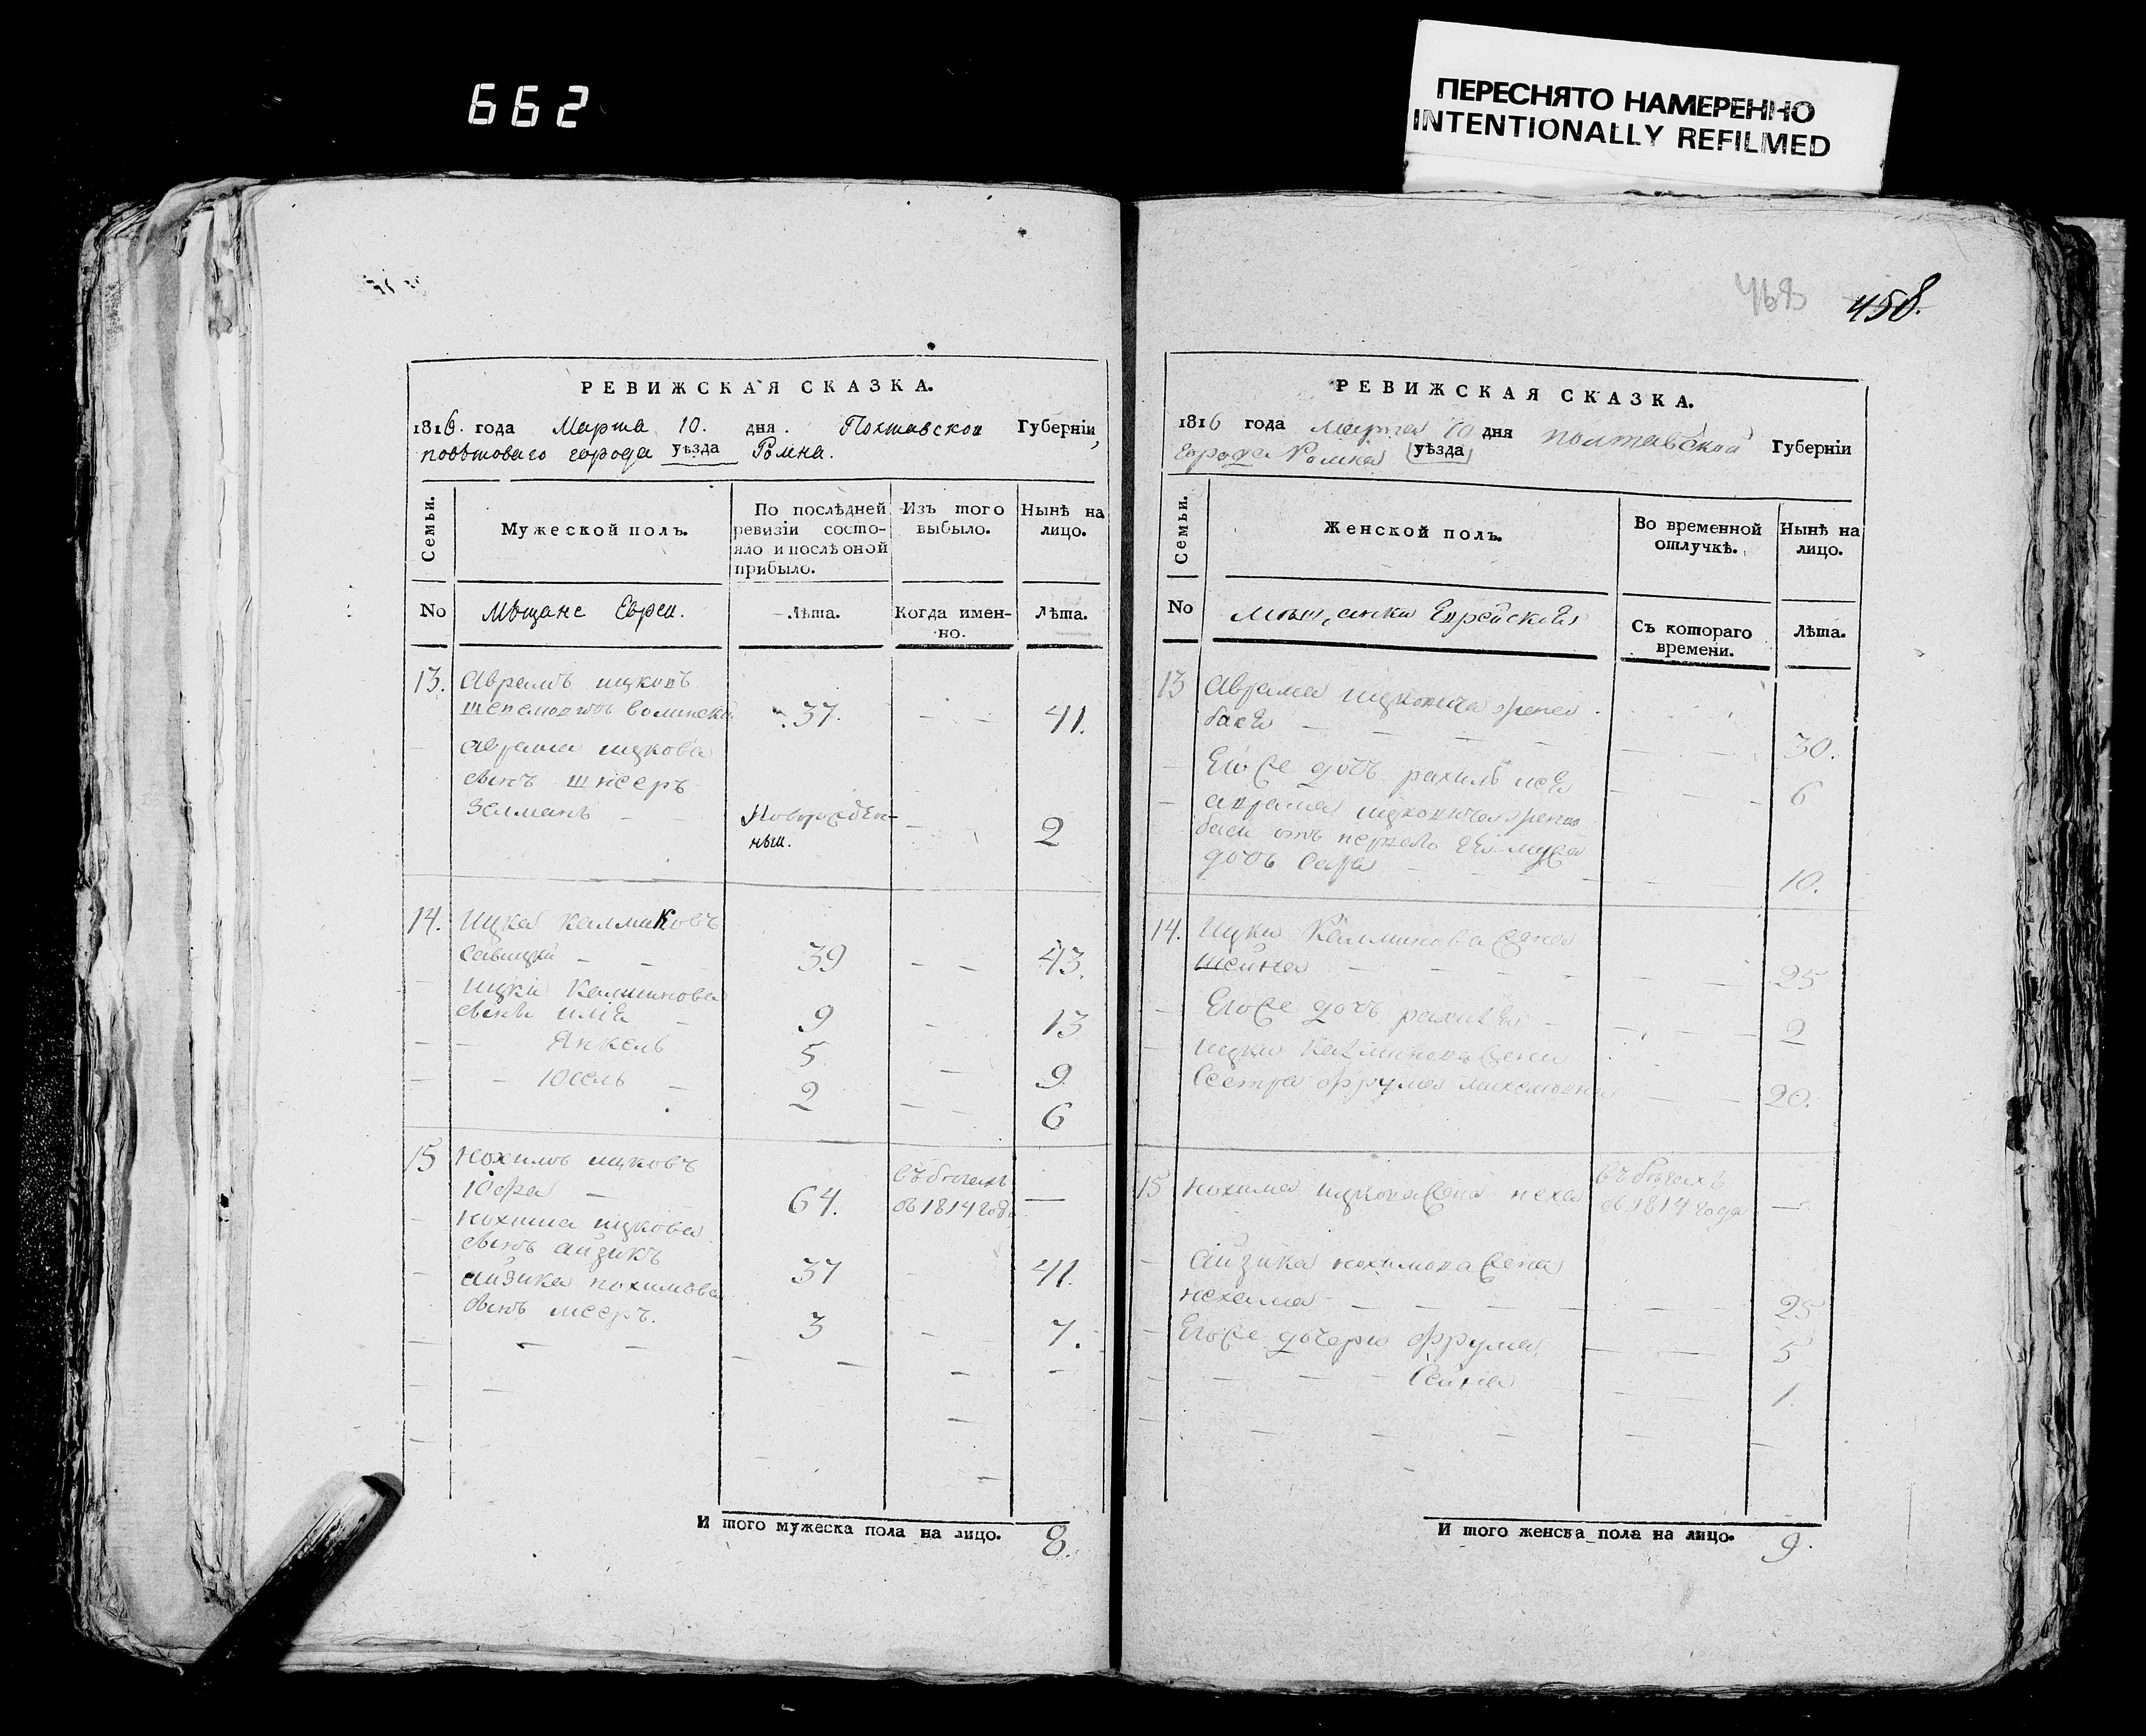 662
ПЕРЕСНЯТО НАМЕРЕННО
INTENTIONALLY REFILMED
РЕВИЖСКАЯ СКАЗКА.
1816. года Марта 10. дня. Полтавской Губерніи,
повѣтоваго города уѣзда Ромна.
Семьи.
Мужеской полъ.
По послѣдней
ревизіи состо-
яло и послѣ оной
прибыло.
Изъ того
выбыло.
Нынѣ на
лицо.
No
Мѣщане Евреи.
Лѣта.
Когда имен-
но.
Лѣта.
13. Аврамъ ицковъ
37. 41.
Аврама ицкова
сынъ шнееръ
Зелманъ
Новорожден-
ный.
2
14. Ицка Калмановъ
Савицкій 39 43.
Ицки Калманова
сынъ 9 13
Янкель 5 9
Юсель 2 6
15 Нохимъ ицковъ
64. въ бѣгахъ
съ 1814 года —
Нохима ицкова
сынъ айзикъ 37 41.
айзика нохимова
сынъ мееръ. 3 7.
И того мужеска пола на лицо. 8.
458.
РЕВИЖСКАЯ СКАЗКА.
1816 года Марта 10 дня полтавской Губерніи
Города Ромна уѣзда
Семьи.
Женской полъ.
Во временной
отлучкѣ.
Нынѣ на
лицо.
No
Мѣщанки Еврейскія
Съ котораго
времени.
Лѣта.
13 Аврама ицковича жена
бася 30.
Его же дочь рахиль лея 6
аврама ицковича жены
баси отъ перваго ея мужа
дочь Сара 10.
14. Ицки Калманова жена
шейна 25
Его же дочь 2
ицки Калманова жены
Сестра фрума 20.
15 Нохима ицкова жена неха
въ бѣгахъ
съ 1814 года —
айзика нохимова жена
нехама 25
Его же дочери фрума 5
1.
И того женска пола на лицо. 9.